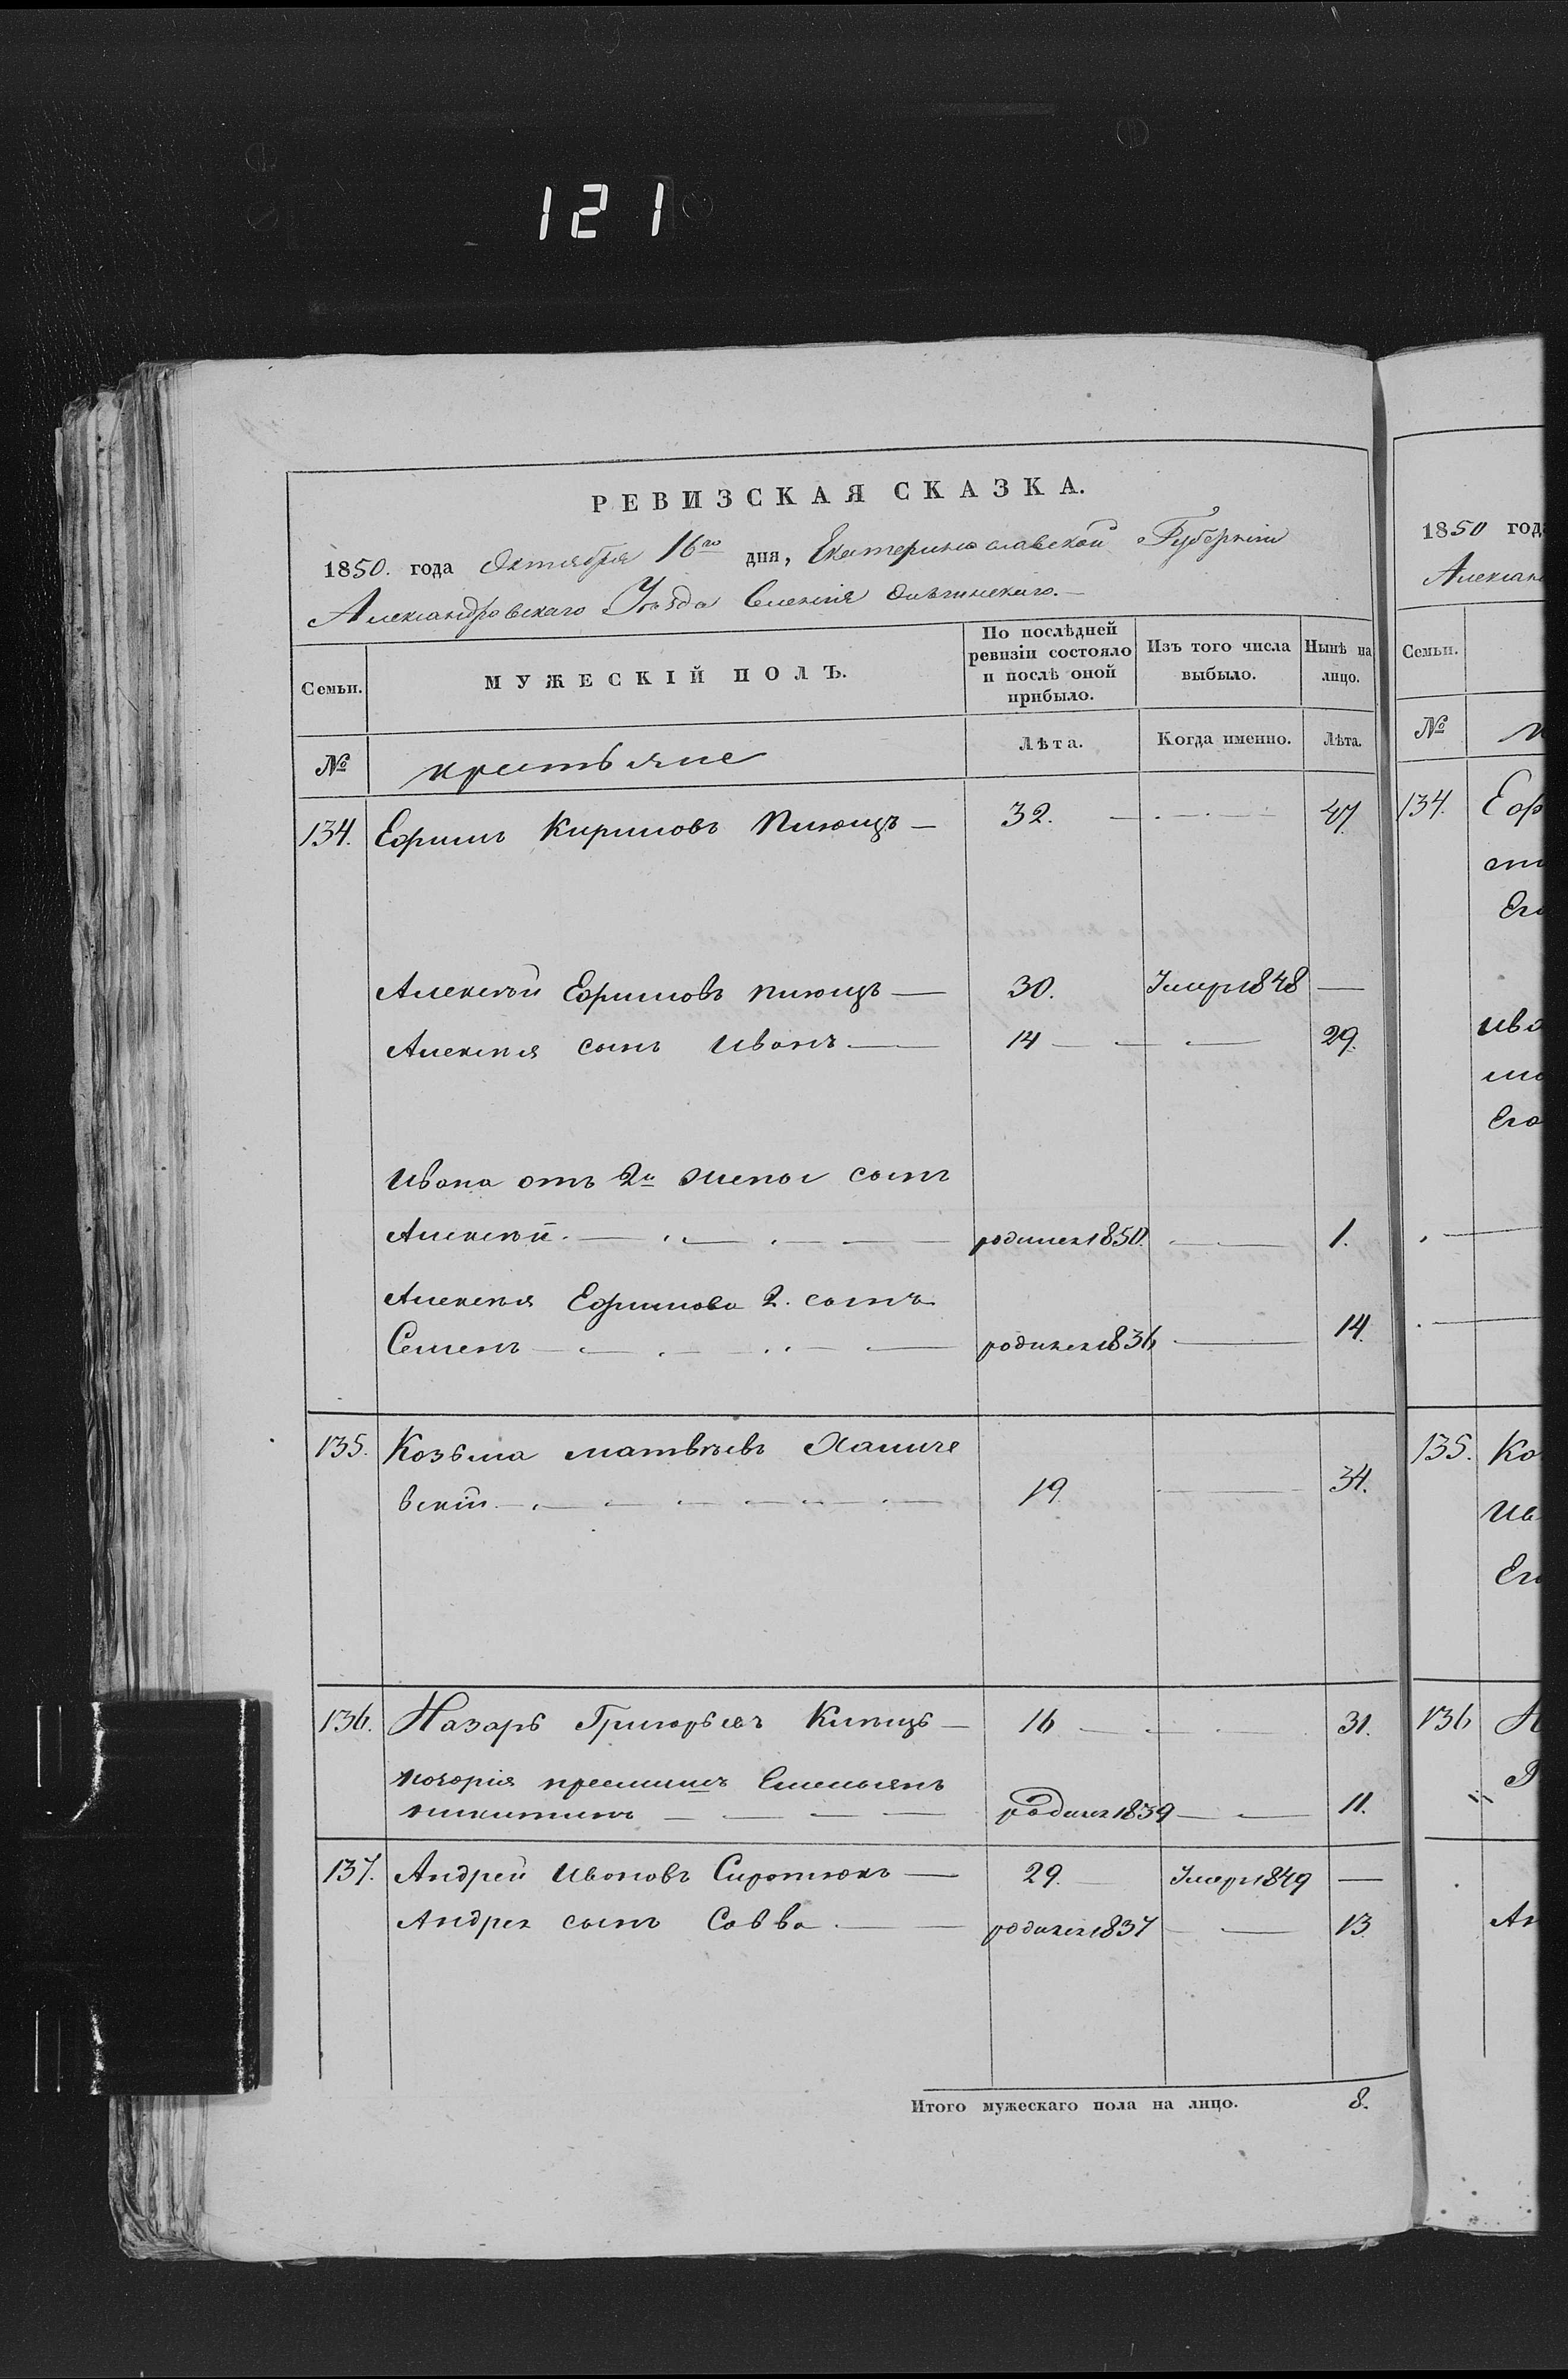 121
РЕВИЗСКАЯ СКАЗКА.
1850. года Октября 16го дня, Екатеринославской Губерніи
Александровскаго Уѣзда Селенія
Семьи.
МУЖЕСКІЙ ПОЛЪ.
По послѣдней ревизіи состояло и послѣ оной прибыло.
Изъ того числа выбыло.
Нынѣ на лицо.
№
крестьяне
Лѣта.
Когда именно.
Лѣта.
134. Ефимъ Кириловъ 32. 47
Алексѣй Ефимовъ 30. Умеръ 1848 —
Алексѣя сынъ Иванъ — 14 — 29.
Ивана отъ 2й жены сынъ
Алексѣй. — родился 1850. — 1.
Алексѣя Ефимова 2. сынъ
Семенъ — родился 1836 — 14.
135. Козьма Матвѣевъ Халиче
вскій — 19. — 34.
136. Назаръ Григорьевъ 16 — 31.
Емельянъ
Никитинъ — родился 1839 — 11.
137. Андрей Ивановъ Сиротюкъ — 29. — Умеръ 1849 —
Андрея сынъ Савва. — родился 1837 — 13
Итого мужескаго пола на лицо. 8.
1850 года
Семьи.
№
134.
135. Ко
136